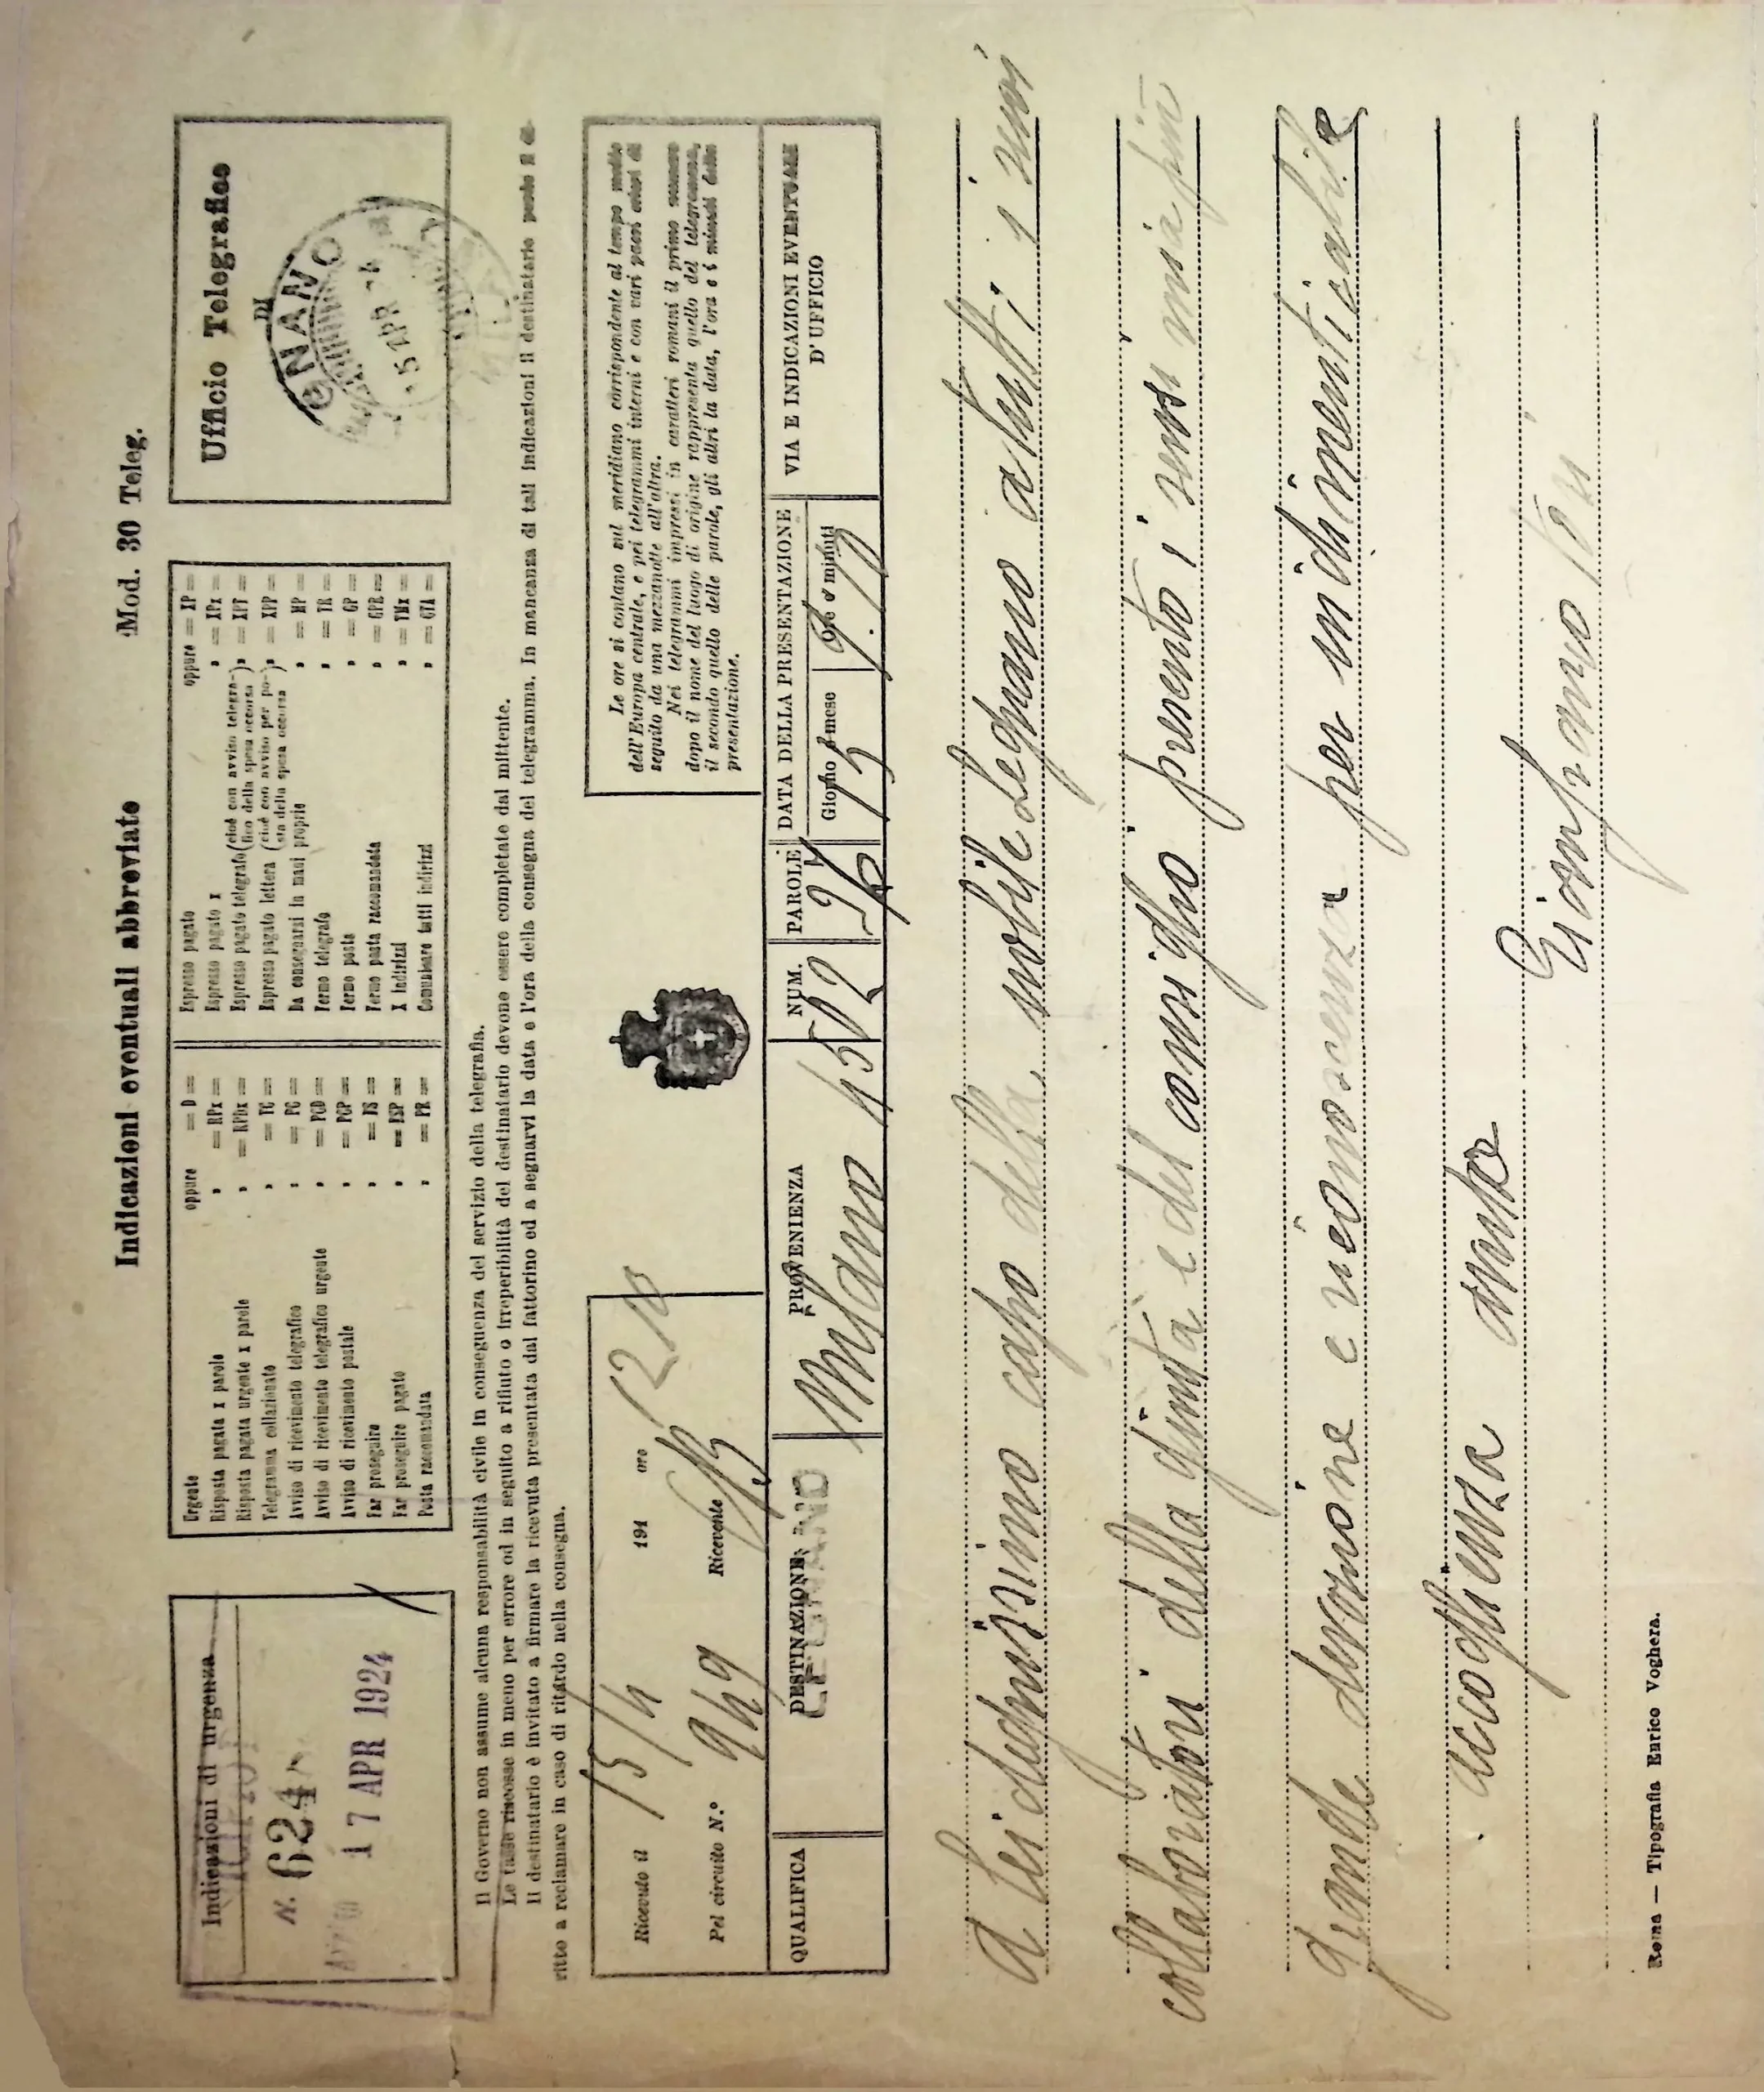 Indicazioni eventuali abbreviate
Mod. 30 Teleg.
Indicazioni di urgenza
N. 624
17 APR 1924
Urgente oppure = D =
Risposta pagata x parole „ = RPx =
Risposta pagata urgente x parole „ = RPDx =
Telegramma collazionato „ = TC =
Avviso di ricevimento telegrafico „ = PC =
Avviso di ricevimento telegrafico urgente „ = PCD =
Avviso di ricevimento postale „ = PCP =
Far proseguire „ = FS =
Far proseguire pagato „ = FSP =
Posta raccomandata „ = PR =
Espresso pagato oppure = XP =
Espresso pagato x „ = XPx =
Espresso pagato telegrafo (cioè con avviso telegrafico della spesa occorsa) „ = XPT =
Espresso pagato lettera (cioè con avviso per posta della spesa occorsa) „ = XPP =
Da consegnarsi in mani proprie „ = MP =
Fermo telegrafo „ = TR =
Fermo posta „ = GP =
Fermo posta raccomandata „ = GPR =
X indirizzi „ = TMx =
Comunicare tutti indirizzi „ = CTA =
Ufficio Telegrafico
DI
GNANO
5 APR
Il Governo non assume alcuna responsabilità civile in conseguenza del servizio della telegrafia.
Le tasse riscosse in meno per errore od in seguito a rifiuto o irreperibilità del destinatario devono essere completate dal mittente.
Il destinatario è invitato a firmare la ricevuta presentata dal fattorino ed a segnarvi la data e l'ora della consegna del telegramma. In mancanza di tali indicazioni il destinatario perde il di-
ritto a reclamare in caso di ritardo nella consegna.
Ricevuto il 15/4 191 ore 1210
Pel circuito N.° 949 Ricevente
Le ore si contano sul meridiano corrispondente al tempo medio
dell'Europa centrale, e pei telegrammi interni e con vari paesi esteri di
seguito da una mezzanotte all'altra.
Nei telegrammi impressi in caratteri romani il primo numero
dopo il nome del luogo di origine rappresenta quello del telegramma,
il secondo quello delle parole, gli altri la data, l'ora e i minuti della
presentazione.
QUALIFICA DESTINAZIONE PROVENIENZA NUM. PAROLE DATA DELLA PRESENTAZIONE VIA E INDICAZIONI EVENTUALI
Giorno e mese Ore e minuti D'UFFICIO
LEGNANO Milano 4502 26 15 9.10
A Lei degnissimo capo della nobile Legnano a tutti i suoi
collaboratori della giunta e del consiglio presento i sensi mia più
grande devozione e riconoscenza per indimenticabile
accoglienza avuta
Gianfranco
Roma — Tipografia Enrico Voghera.